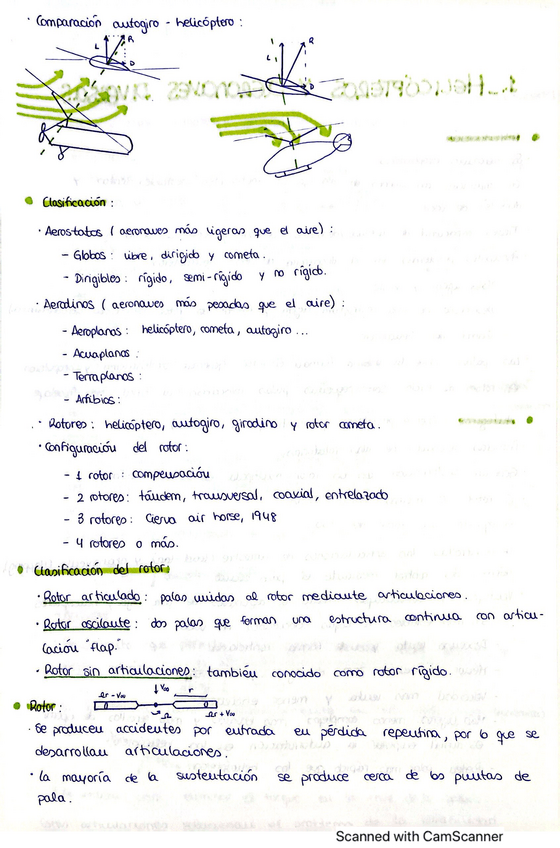 · Comparación autogiro - helicóptero:
L R D
L R D
Clasificación:
· Aerostatos (aeronaves más ligeras que el aire):
- Globos: libre, dirigido y cometa.
- Dirigibles: rígido, semi-rígido y no rígido.
· Aerodinos (aeronaves más pesadas que el aire):
- Aeroplanos: helicóptero, cometa, autogiro...
- Acuaplanos:
- Terraplanos:
- Anfibios:
· Rotores: helicóptero, autogiro, girodino y rotor cometa.
· Configuración del rotor:
- 1 rotor: compensación
- 2 rotores: tándem, transversal, coaxial, entrelazado
- 3 rotores: Cierva air horse, 1948
- 4 rotores o más.
Clasificación del rotor:
· Rotor articulado: palas unidas al rotor mediante articulaciones.
· Rotor oscilante: dos palas que forman una estructura continua con articu-
lación "flap."
· Rotor sin articulaciones: también conocido como rotor rígido.
Rotor: Ωr-V∞ ↓V∞ r Ω Ωr+V∞
· Se producen accidentes por entrada en pérdida repentina, por lo que se
desarrollan articulaciones.
· La mayoría de la sustentación se produce cerca de las puntas de
pala.
Scanned with CamScanner